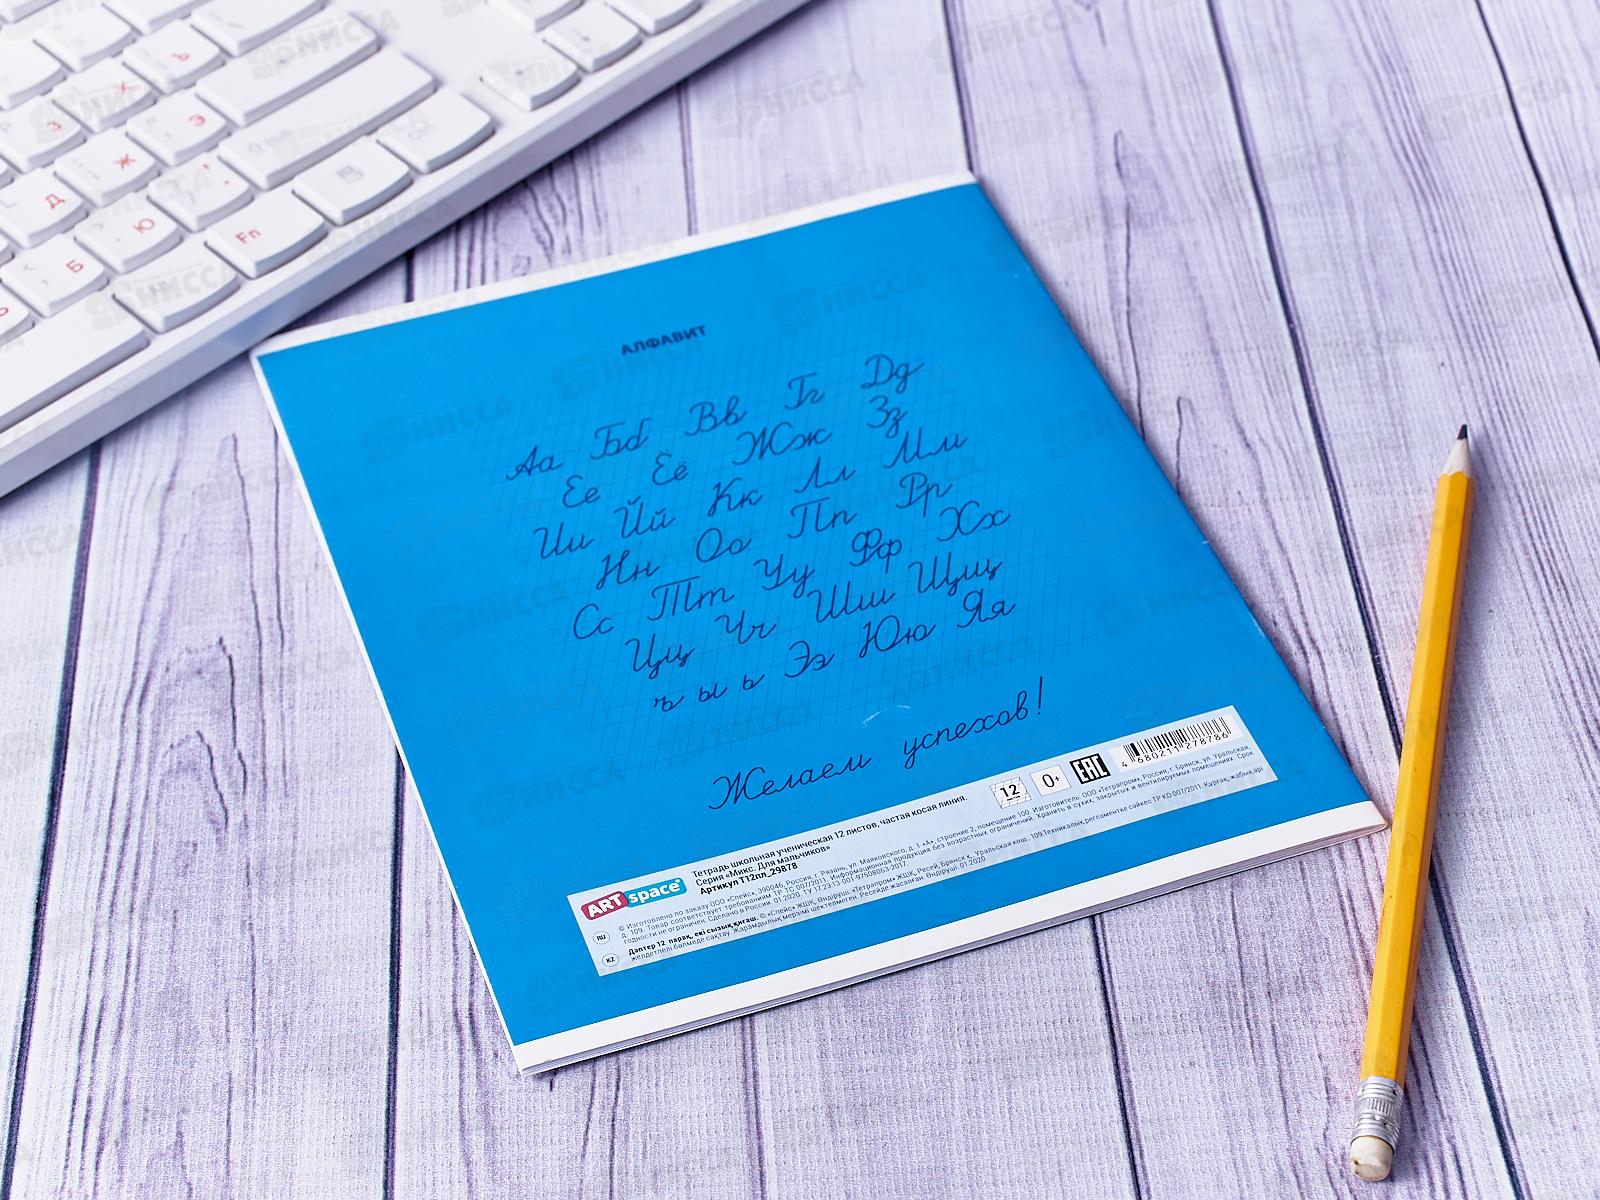 АЛФАВИТ
Аа Бб Вв Гг Дд
Ее Ёё Жж Зз
Ии Йй Кк Лл Мм
Нн Оо Пп Рр
Сс Тт Уу Фф Хх
Цц Чч Шш Щщ
ъ ы ь Ээ Юю Яя
Желаем успехов!
ART space
Тетрадь школьная ученическая 12 листов, частая косая линия.
Серия «Микс. Для мальчиков»
Артикул Т12пл_29878
12
0+
EAC
4 680211 278786
RU
© Изготовлено по заказу ООО «Спейс», 390046, Россия, г. Рязань, ул. Маяковского, д. 1 «А», строение 2, помещение 100. Изготовитель: ООО «Тетрапром», Россия, г. Брянск, ул. Уральская,
д. 109. Товар соответствует требованиям ТР ТС 007/2011. Информационная продукция без возрастных ограничений. Хранить в сухих, закрытых и вентилируемых помещениях. Срок
годности не ограничен. Сделано в России. 01.2020. ТУ 17.23.13-001-97508063-2017.
KZ
Дәптер 12 парақ, екі сызық қиғаш. © «Спейс» ЖШҚ. Өндіруші: «Тетрапром» ЖШҚ, Ресей, Брянск қ., Уральская көш., 109. Техникалық регламентке сәйкес ТР КО 007/2011. Құрғақ, жабық әрі
желдетілетін бөлмеде сақтау. Жарамдылық мерзімі шектелмеген. Ресейде жасалған. Өндіруші: 01.2020.
НИССА
Fn
Ctrl
З
Х
Ъ
Ж
Э
Д
Ю
Б